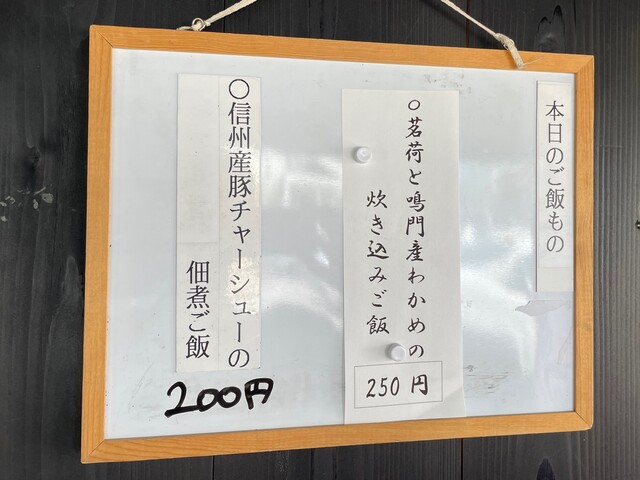 本日のご飯もの
○茗荷と鳴門産わかめの
炊き込みご飯
250円
○信州産豚チャーシューの
佃煮ご飯
200円